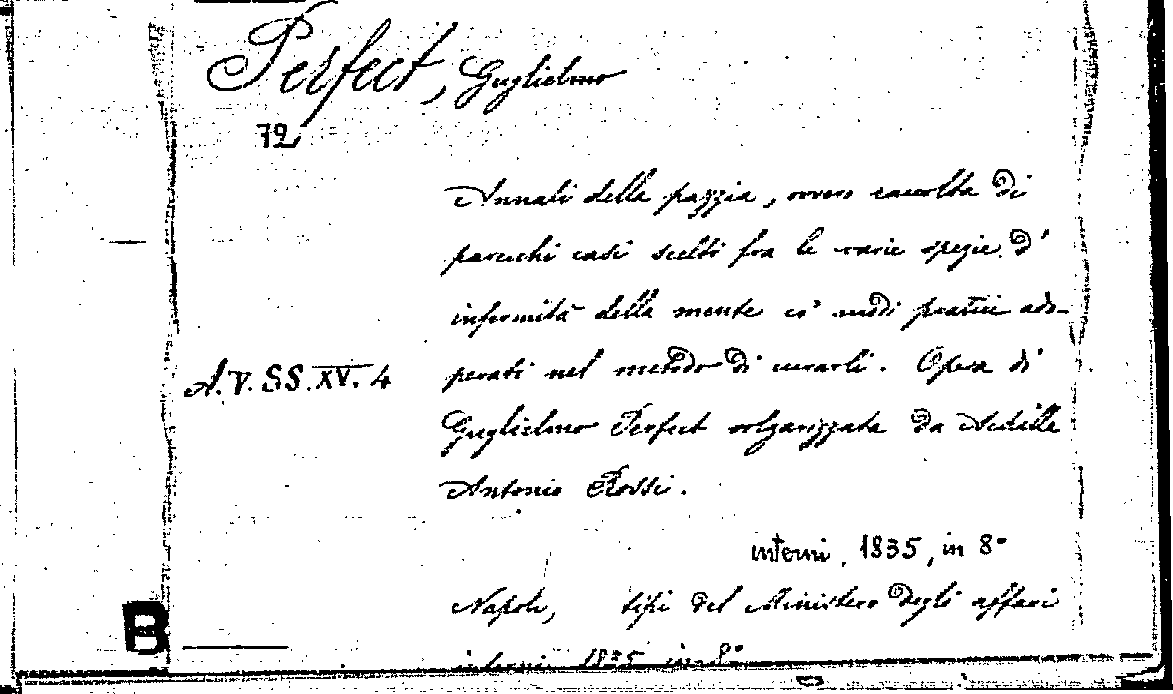 Perfect, Guglielmo
72
Annali della pazzia, ovvero raccolta di
parecchi casi scelti fra le varie spezie d'
infermità della mente co' modi pratici ado-
A.V. SS. XV. 4
perati nel metodo di curarli. Opera di
Guglielmo Perfect volgarizzata da Achille
Antonio Rossi.
interni, 1835, in 8°
Napoli, tipi del Ministero degli affari
interni 1835 in 8°
B